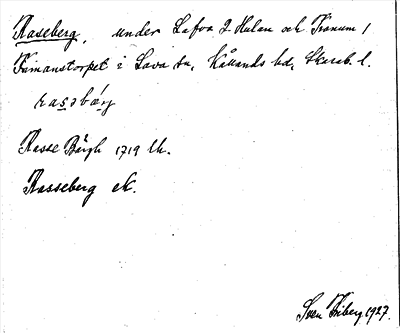 Raseberg, under Lafva 2. Hulan och Tranum 1
Simonstorpet i Lava sn, Kållands hd, Skarab. l.
rasəbärj
Rasse Bärgh 1719 lk.
Rasseberg ek.
Sven Friberg 1927.